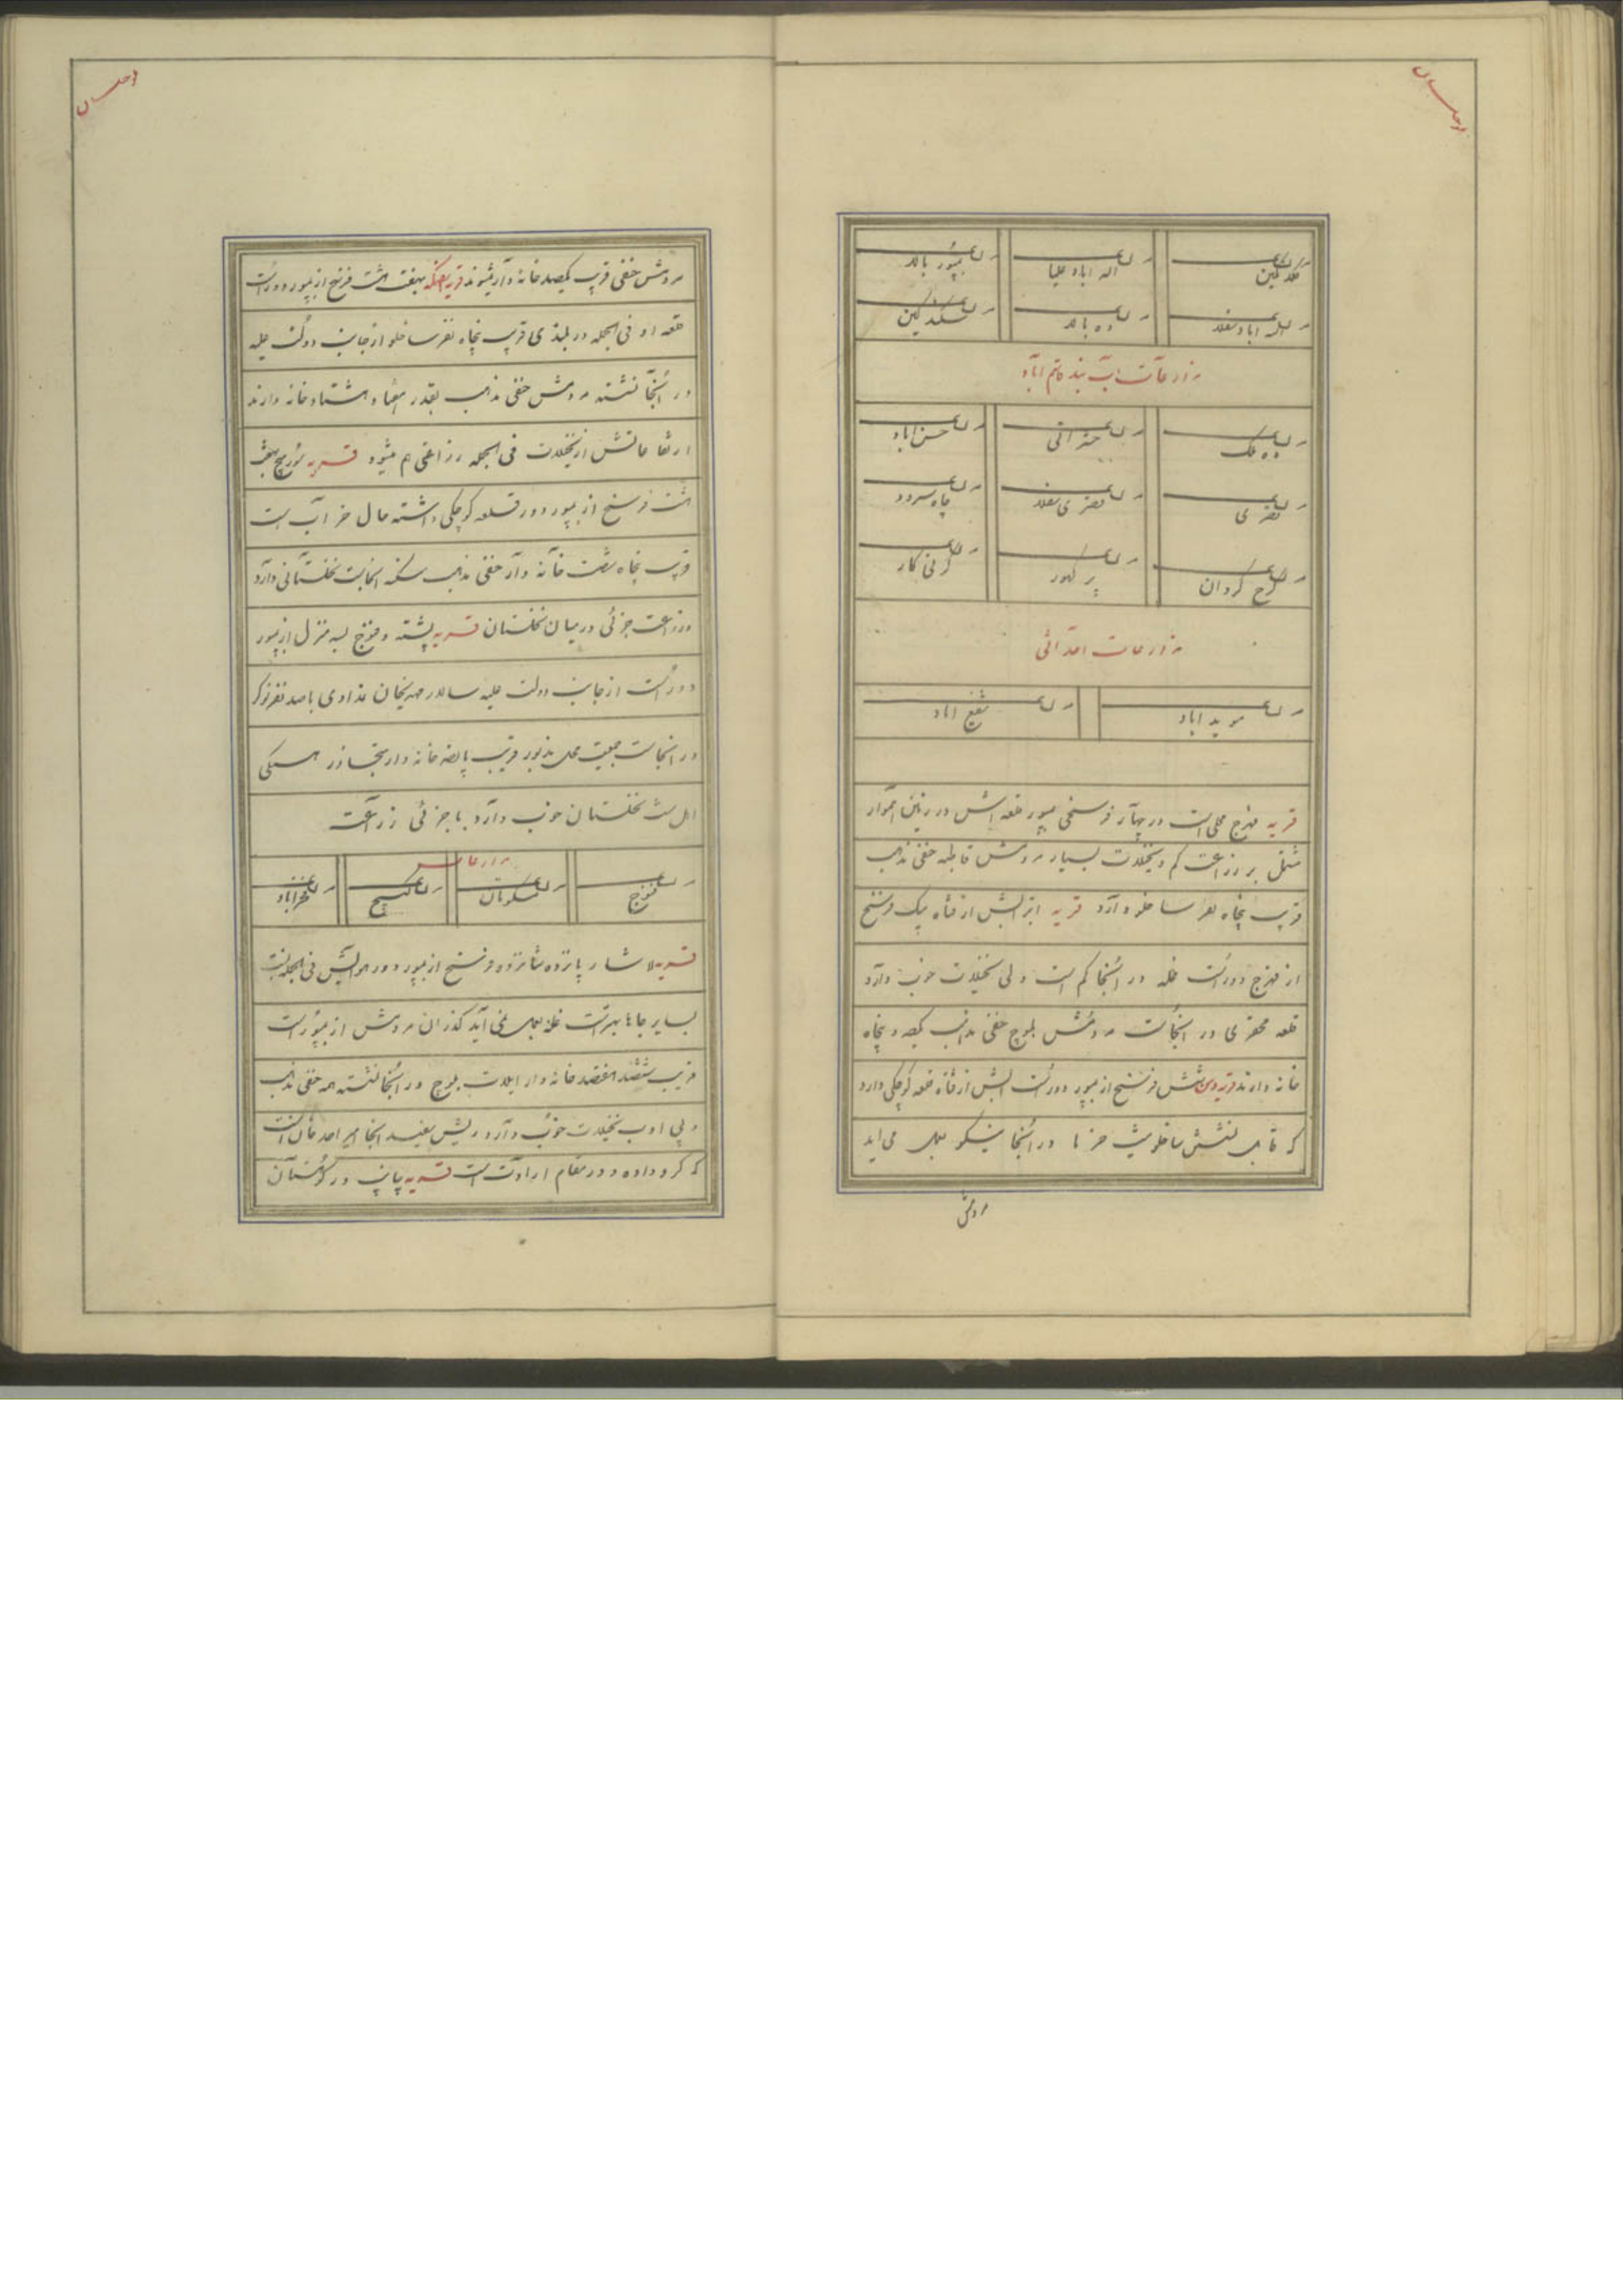 بلوچستان
مزرعه کلاتکین مزرعه اله اباد علیا مزرعه بمپور بالا
مزرعه اله اباد سفلا مزرعه ده بالا مزرعه
مزارعات آب بند قاسم آباد
مزرعه ده ملک مزرعه مزرعه حسن اباد
مزرعه قصری مزرعه قصری سفلا مزرعه چاه سردو
مزرعه چرخ گردان مزرعه پر کهور مزرعه کار
مزارعات احداثی
مزرعه موید اباد مزرعه شفیع اباد
قریه فهرج محلی است در چهار فرسخی بمپور قلعه اش در زمین هموار
مشتمل بر زراعت کم و نخیلات بسیار مردمش قاطبه حنفی مذهب
قریب پنجاه نفر ساخلو دارد قریه ابترآبش از قناة یک فرسخ
از فهرج دور است غله در آنجا کم است ولی نخیلات خوب دارد
قلعه محقری در آنجاست مردمش بلوچ حنفی مذهب یکصد و پنجاه
خانه دارند قریه شش فرسخ از بمپور دور است آبش از قناة قلعه کوچکی دارد
که قابل نشیمن ساخلو نیست خرما در آنجا نیکو بعمل می اید
مردمش
بلوچستان
مردمش حنفی قریب یکصد خانه وار میشوند قریه هفت هشت فرسخ از بمپور دور است
قلعه او فی الجمله در بلندی قریب پنجاه نفر ساخلو از جانب دولت علیه
در آنجا نشسته مردمش حنفی مذهب بقدر هفتاد هشتاد خانه دارند
ارتفاعاتش از نخیلات فی الجمله زراعتی هم میشود قریه هفت
هشت فرسخ از بمپور دور قلعه کوچکی داشته حال خرابست
قریب پنجاه شصت خانه وار حنفی مذهب سکنه انجاست نخلستانی دارد
و زراعت جزئی در میان نخلستان قریه پشته و فنوج سه منزل از بمپور
دور است از جانب دولت علیه سالار مهیم خان با صد نفر نوکر
در انجاست جمعیت محل مذبور قریب پانصد خانه وار متجاوز همگی
اهل سنت نخلستان خوب دارد با جزئی زراعت
مزارعات
مزرعه فنوج مزرعه مسکوتان مزرعه مزرعه
قریه لاشار پانزده شانزده فرسخ از بمپور دور هوایش فی الجمله نسبت
بسایر جاها بهتر است غله بعمل نمی آید گذران مردمش از بمپور است
قریب ششصد هفتصد خانه وار ایلات بلوچ در آنجا نشسته همه حنفی مذهب
و بی ادب نخیلات خوب دارد ریش سفید انجا میر احمد خان است
که گرو داده و در مقام ارادت است قریه پیپ در کوهستان